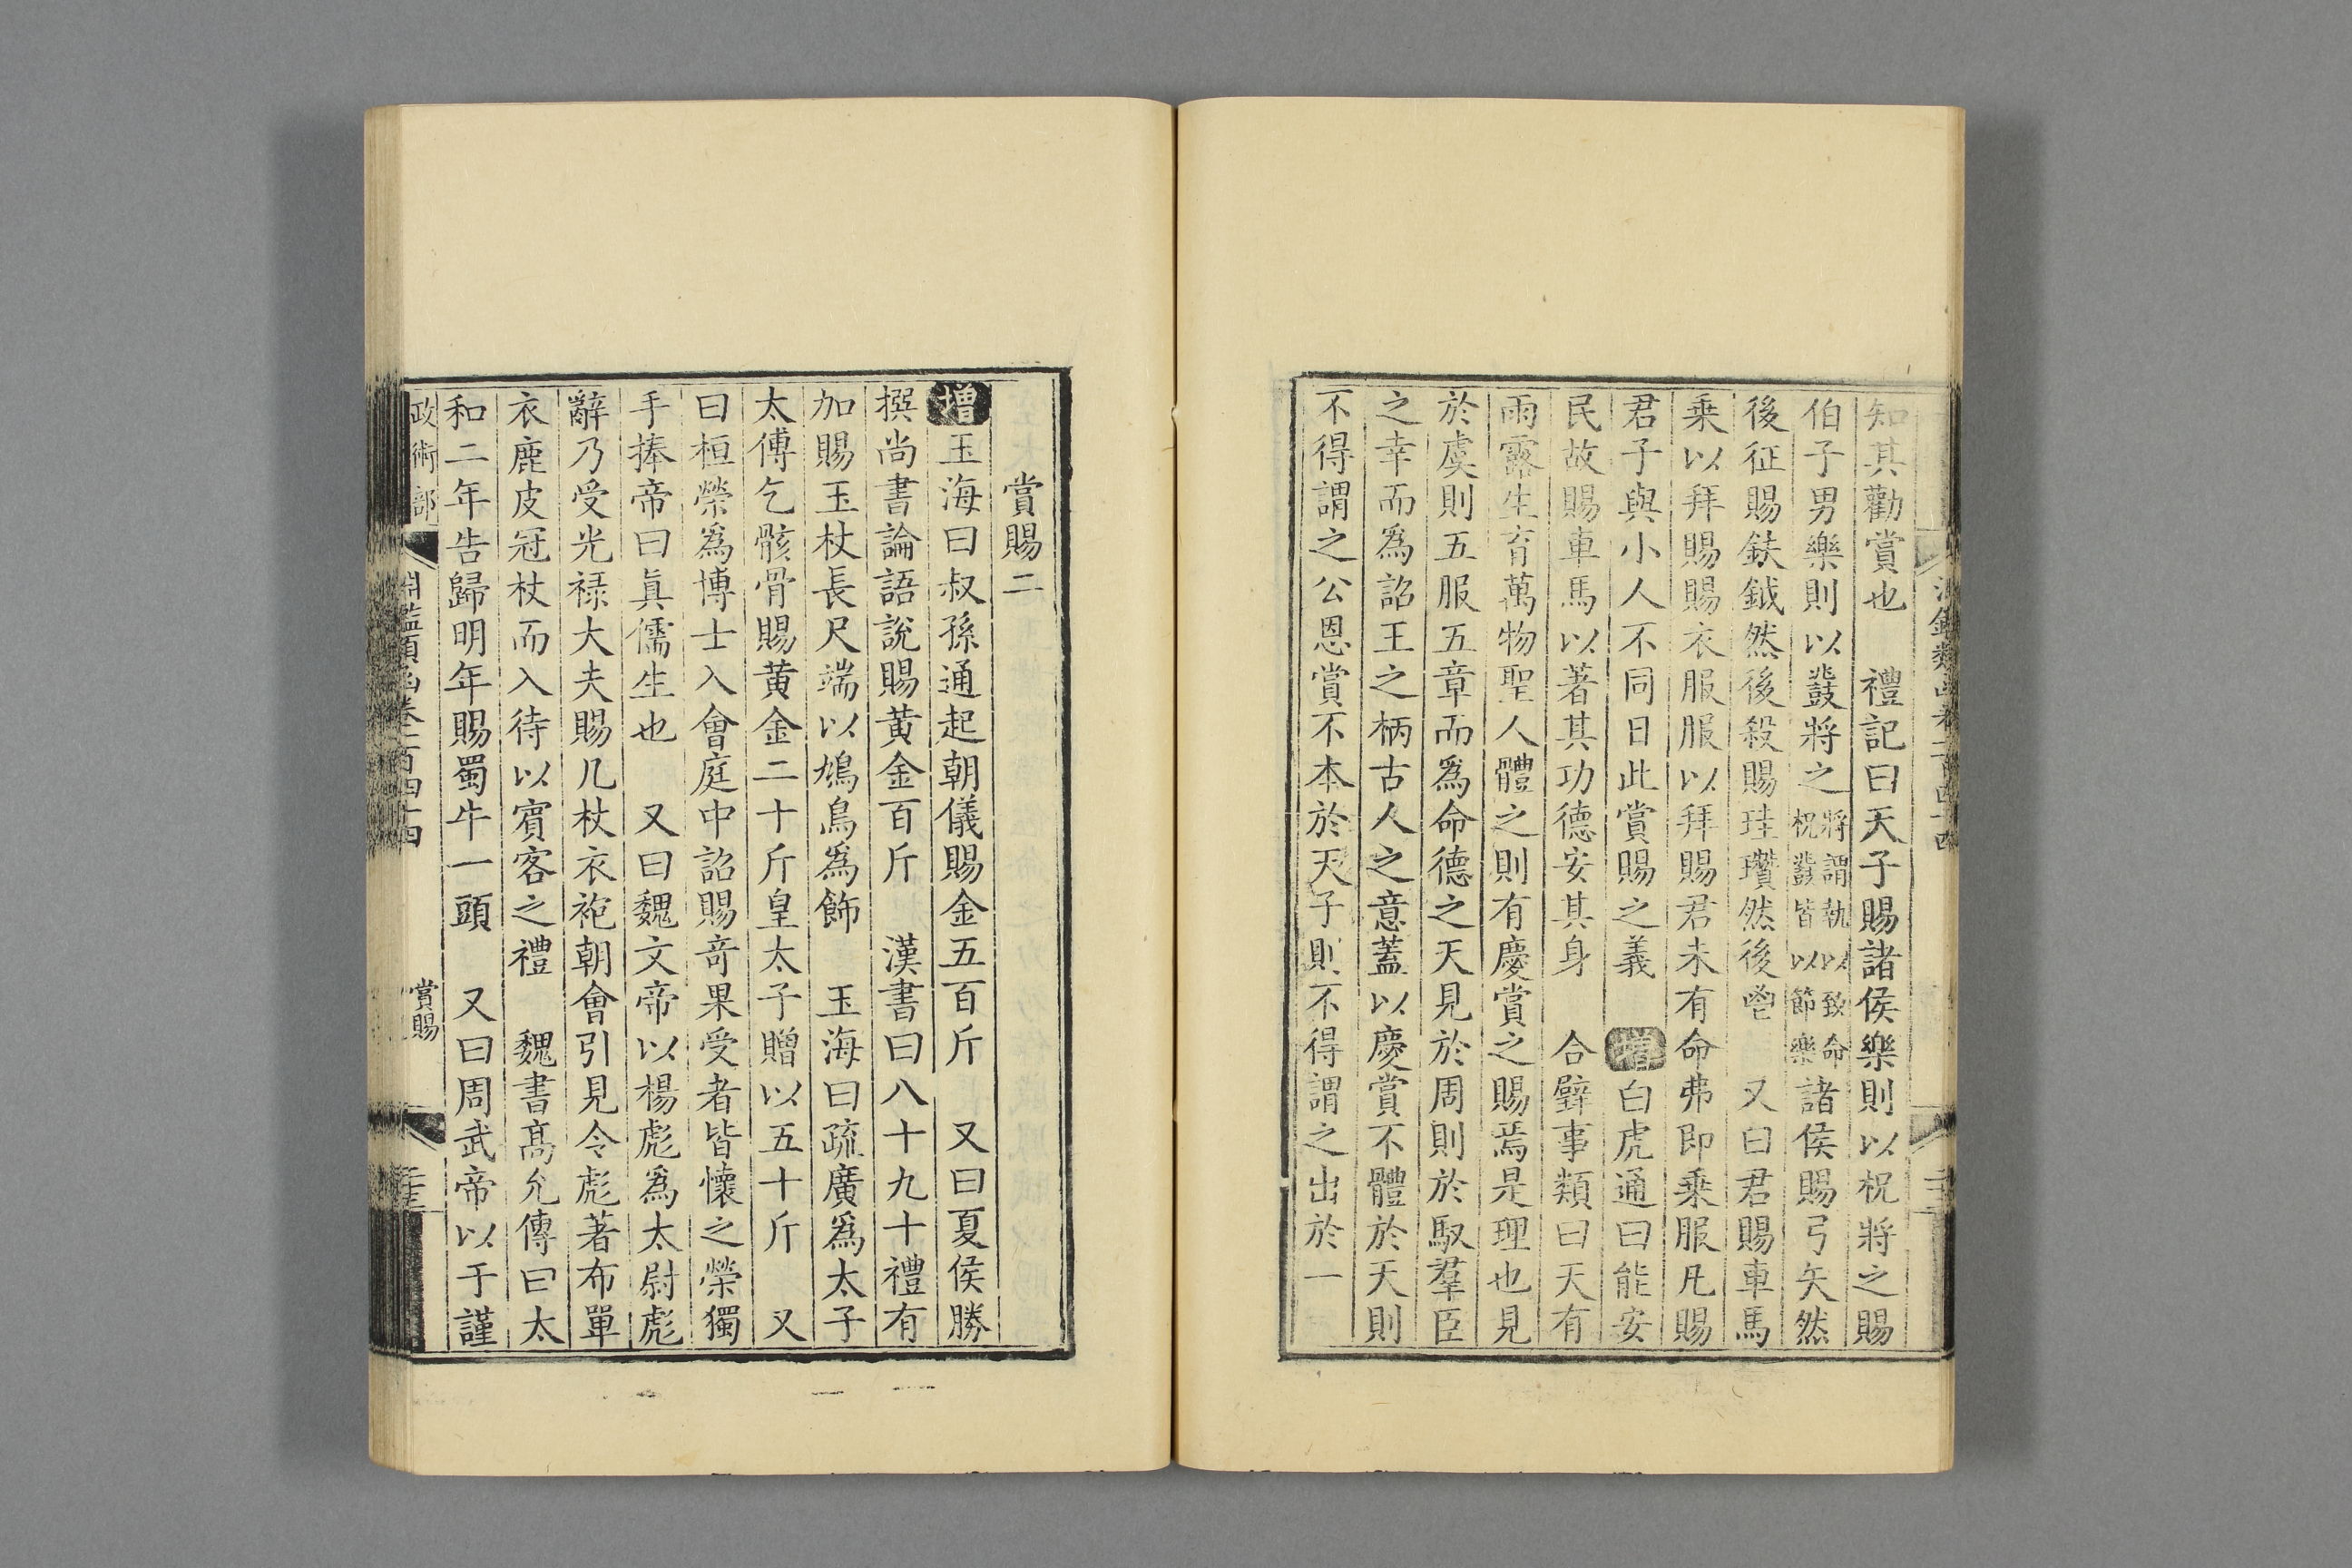 知其勸賞也　禮記曰天子賜諸侯樂則以柷將之賜
伯子男樂則以鼗將之將謂執以致命柷鼗皆以節樂諸侯賜弓矢然
後征賜鈇鉞然後殺賜珪瓚然後鬯　又曰君賜車馬
乘以拜賜賜衣服服以拜賜君未有命弗即乘服凡賜
君子與小人不同日此賞賜之義　增白虎通曰能安
民故賜車馬以著其功德安其身　合璧事類曰天有
雨露生育萬物聖人體之則有慶賞之賜焉是理也見
於虞則五服五章而為命德之天見於周則於馭羣臣
之幸而為詔王之柄古人之意蓋以慶賞不體於天則
不得謂之公恩賞不本於天子則不得謂之出於一
賞賜二
增玉海曰叔孫通起朝儀賜金五百斤　又曰夏侯勝
撰尚書論語說賜黄金百斤　漢書曰八十九十禮有
加賜玉杖長尺端以鳩鳥為飾　玉海曰疏廣為太子
太傅乞骸骨賜黄金二十斤皇太子贈以五十斤　又
曰桓榮為博士入會庭中詔賜奇果受者皆懷之榮獨
手捧帝曰眞儒生也　又曰魏文帝以楊彪為太尉彪
辭乃受光禄大夫賜几杖衣袍朝會引見令彪著布單
衣鹿皮冠杖而入待以賓客之禮　魏書髙允傳曰太
和二年告歸明年賜蜀牛一頭　又曰周武帝以于謹
政術部　淵鑑類函卷二百四十四　賞賜